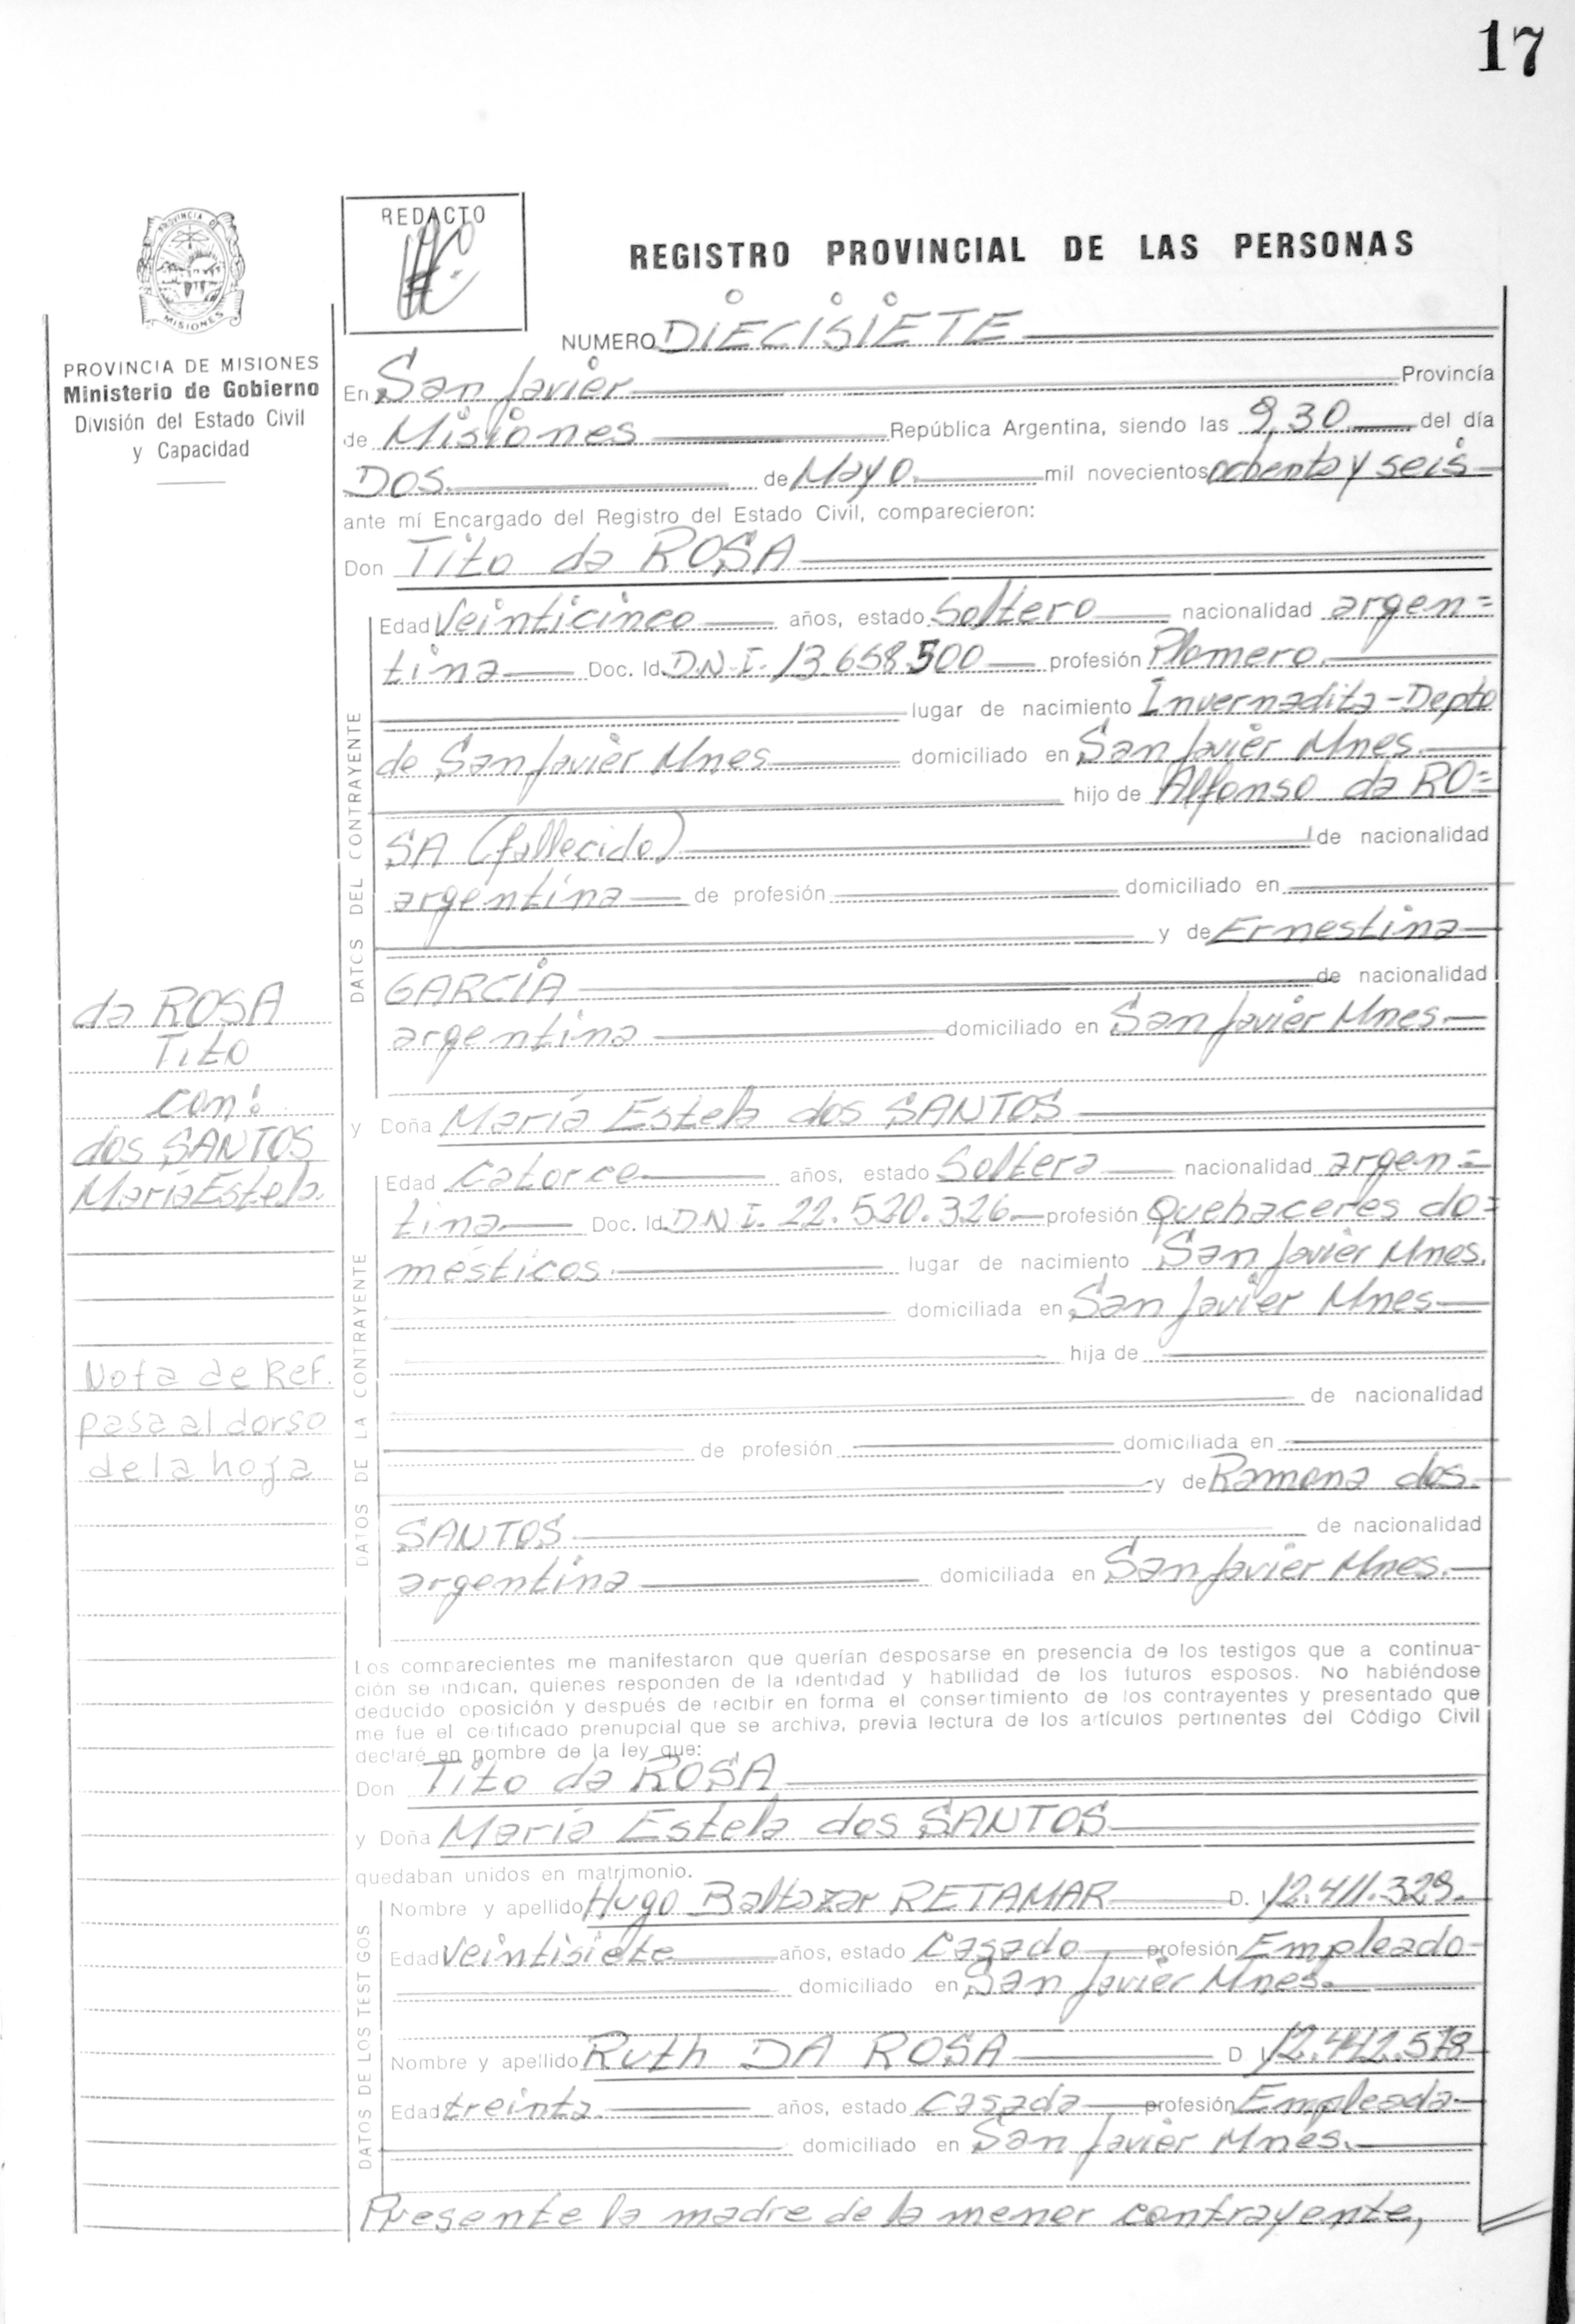 17
REDACTO
REGISTRO PROVINCIAL DE LAS PERSONAS
PROVINCIA DE
MISIONES
PROVINCIA DE MISIONES
Ministerio de Gobierno
División del Estado Civil
y Capacidad
NUMERO DIECISIETE
En San Javier Provincia
de Misiones República Argentina, siendo las 9,30 del día
Dos de Mayo mil novecientos ochenta y seis
ante mí Encargado del Registro del Estado Civil, comparecieron:
Don Tito da ROSA
DATOS DEL CONTRAYENTE
Edad Veinticinco años, estado Soltero nacionalidad argen=
tina Doc. Id. D.N.I. 13.658.500 profesión Plomero
lugar de nacimiento Invernadita-Depto
de San Javier Mnes domiciliado en San Javier Mnes.
hijo de Alfonso da RO=
SA (fallecido) de nacionalidad
argentina de profesión domiciliado en
y de Ernestina
GARCÍA de nacionalidad
argentina domiciliado en San Javier Mnes.
da ROSA
Tito
con:
dos SANTOS
María Estela.
y Doña María Estela dos SANTOS
DATOS DE LA CONTRAYENTE
Edad Catorce años, estado Soltera nacionalidad argen=
tina Doc. Id. D.N.I. 22.520.326. profesión Quehaceres do=
mésticos. lugar de nacimiento San Javier Mnes.
domiciliada en San Javier Mnes
hija de
de nacionalidad
de profesión domiciliada en
y de Ramona dos
SANTOS de nacionalidad
argentina domiciliada en San Javier Mnes.
Nota de Ref.
pasa al dorso
de la hoja
Los comparecientes me manifestaron que querían desposarse en presencia de los testigos que a continua-
ción se indican, quienes responden de la identidad y habilidad de los futuros esposos. No habiéndose
deducido oposición y después de recibir en forma el consentimiento de los contrayentes y presentado que
me fue el certificado prenupcial que se archiva, previa lectura de los artículos pertinentes del Código Civil
declaré en nombre de la ley que:
Don Tito da ROSA
y Doña María Estela dos SANTOS
quedaban unidos en matrimonio.
DATOS DE LOS TESTIGOS
Nombre y apellido Hugo Baltazar RETAMAR D. I. 12.411.329.
Edad Veintisiete años, estado Casado profesión Empleado
domiciliado en San Javier Mnes.
Nombre y apellido Ruth DA ROSA D I. 12.442.578
Edad treinta. años, estado Casada profesión Empleada
domiciliado en San Javier Mnes.
Presente la madre de la menor contrayente,